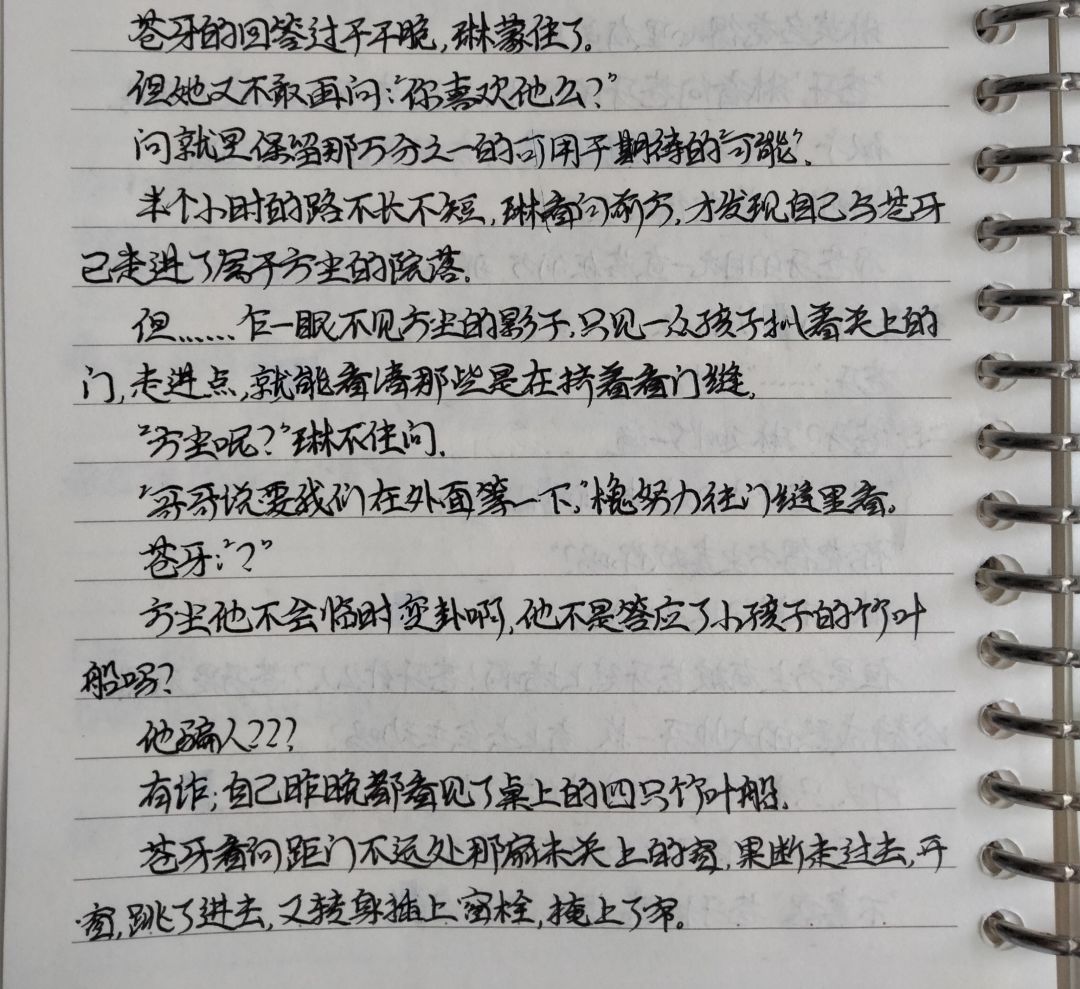 苍牙的回答过于干脆,琳蒙住了。
但她又不敢再问:“你喜欢他么?”
问就是保留那万分之一的可用于期待的“可能”.
半个小时的路不长不短,琳看向前方,才发现自己与苍牙
已走进了属于方尘的院落.
但……乍一眼不见方尘的影子,只见一众孩子扒着关上的
门,走进点,就能看清那些是在挤着看门缝.
“方尘呢?”琳不住问.
“哥哥说要我们在外面等一下,”槐努力往门缝里看。
苍牙:“?”
方尘他不会临时变卦啊,他不是答应了小孩子的竹叶
船吗?
他骗人???
有诈;自己昨晚都看见了桌上的四只竹叶船.
苍牙看向距门不远处那扇未关上的窗,果断走过去,开
窗,跳了进去,又转身插上窗栓,掩上了帘。